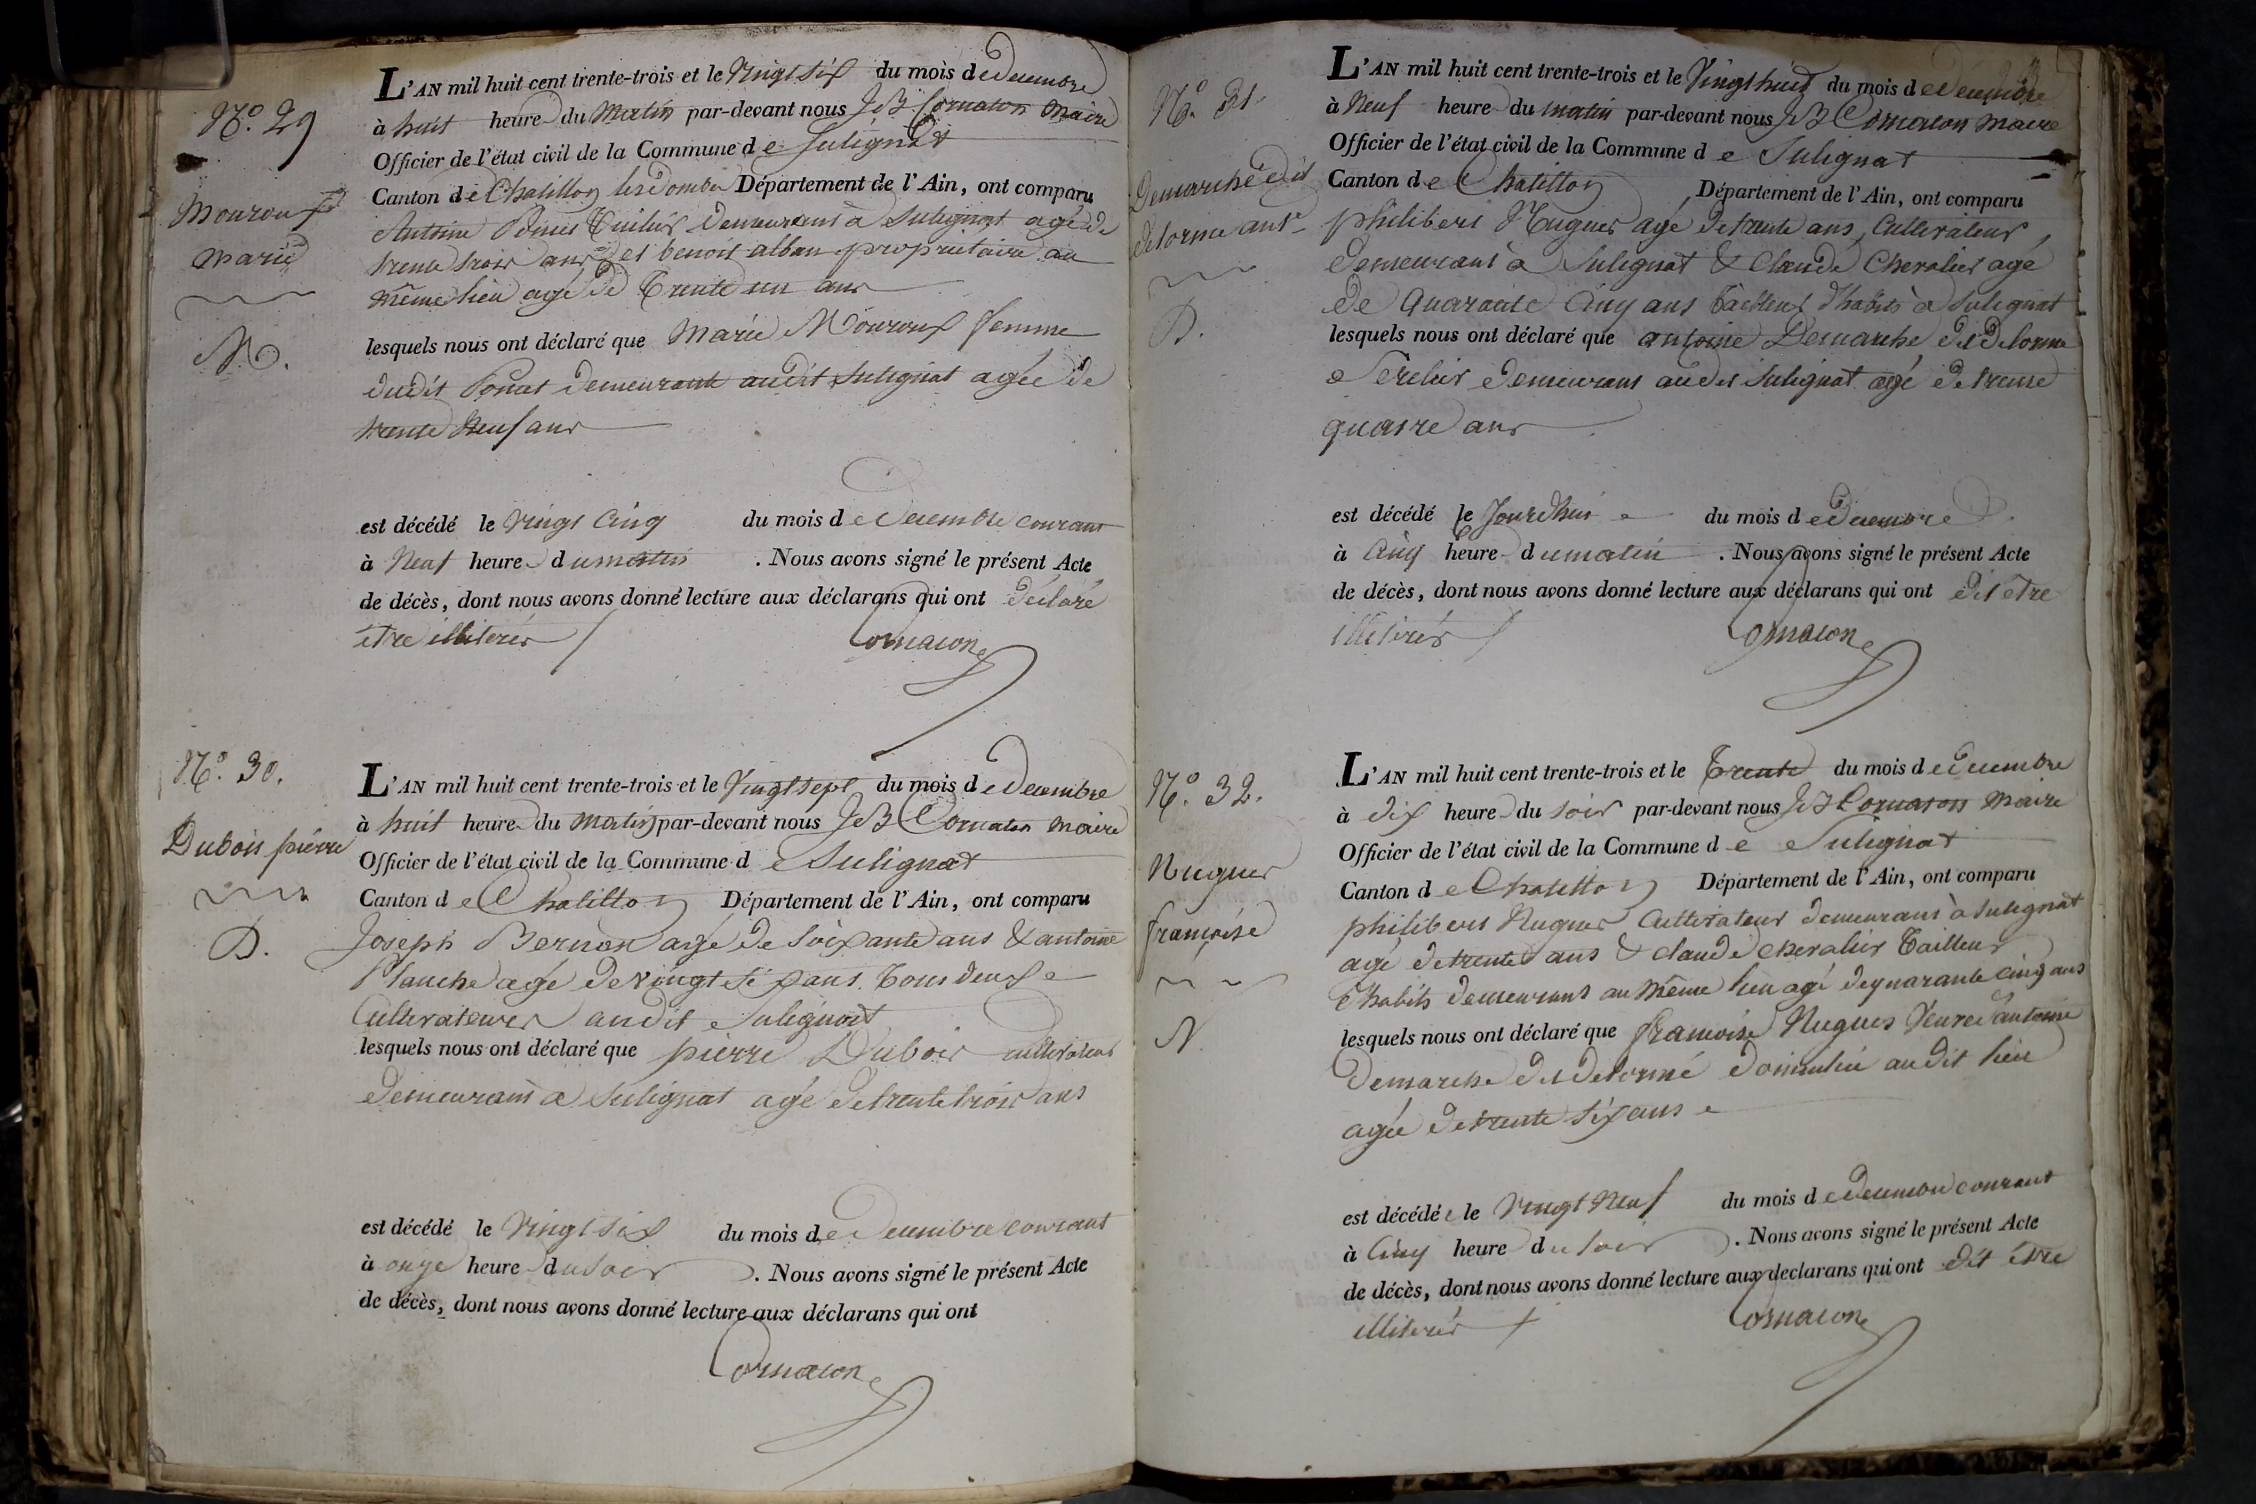 N.o 29
Mouroux
marie
M.
L'AN mil huit cent trente-trois et le Vingt six du mois de decembre
à huit heure du Matin par-devant nous J B Cornaton Maire
Officier de l'état civil de la Commune de Sulignat
Canton de Chatillon les dombes Département de l'Ain, ont comparu
Antoine demeurant à Sulignat agé de
trente trois ans et benoit alban propriétaire au
même lieu agé de Trente un ans
lesquels nous ont déclaré que Marie Mouroux femme
dudit demeurant audit Sulignat agée de
trente Neuf ans
est décédé le vingt Cinq du mois de Decembre courant
à Neuf heure du matin . Nous avons signé le présent Acte
de décès, dont nous avons donné lecture aux déclarans qui ont déclaré
être illiterés
Cornaton
N.o 30.
Dubois pierre
D.
L'AN mil huit cent trente-trois et le Vingt sept du mois de Decembre
à huit heure du matin par-devant nous J B Cornaton maire
Officier de l'état civil de la Commune de Sulignat
Canton de Chatillon Département de l'Ain, ont comparu
Joseph Bernon agé de soixante ans & antoine
Planche agé de vingt six ans Tous deux
Cultivateurs audit Sulignat
lesquels nous ont déclaré que pierre Dubois cultivateur
demeurant à Sulignat agé de trente trois ans
est décédé le Vingt six du mois de Decembre courant
à onze heure du soir . Nous avons signé le présent Acte
de décès, dont nous avons donné lecture aux déclarans qui ont
Cornaton
N.o 31.
Demarche dit
delorme ant.
D.
L'AN mil huit cent trente-trois et le Vingt huit du mois de Decembre
à Neuf heure du matin par-devant nous J B Cornaton maire
Officier de l'état civil de la Commune de Sulignat
Canton de Chatillon Département de l'Ain, ont comparu
philibert Nugues agé de trente ans, Cultivateur,
demeurant à Sulignat & Claude Chevalier agé
de Quarante Cinq ans tailleur d'habits à Sulignat
lesquels nous ont déclaré que antoine Demarche dit Delorme
demeurant audit Sulignat agé de trente
quatre ans
est décédé le Jourdhui du mois de Decembre
à Cinq heure du matin . Nous avons signé le présent Acte
de décès, dont nous avons donné lecture aux déclarans qui ont dit être
illiterés
Cornaton
N.o 32.
Nugues
françoise
N.
L'AN mil huit cent trente-trois et le Trente du mois de decembre
à dix heure du soir par-devant nous J B Cornaton maire
Officier de l'état civil de la Commune de Sulignat
Canton de Chatillon Département de l'Ain, ont comparu
philibert Nugues Cultivateur demeurant à Sulignat
agé de trente ans & claude chevalier Tailleur
d'habits demeurant au même lieu agé de quarante cinq ans
lesquels nous ont déclaré que françoise Nugues Veuve d'antoine
Demarche dit delorme domicilié audit lieu
agée de trente six ans
est décédée le Vingt Neuf du mois de decembre courant
à Cinq heure du soir . Nous avons signé le présent Acte
de décès, dont nous avons donné lecture aux déclarans qui ont dit être
illiterés
Cornaton